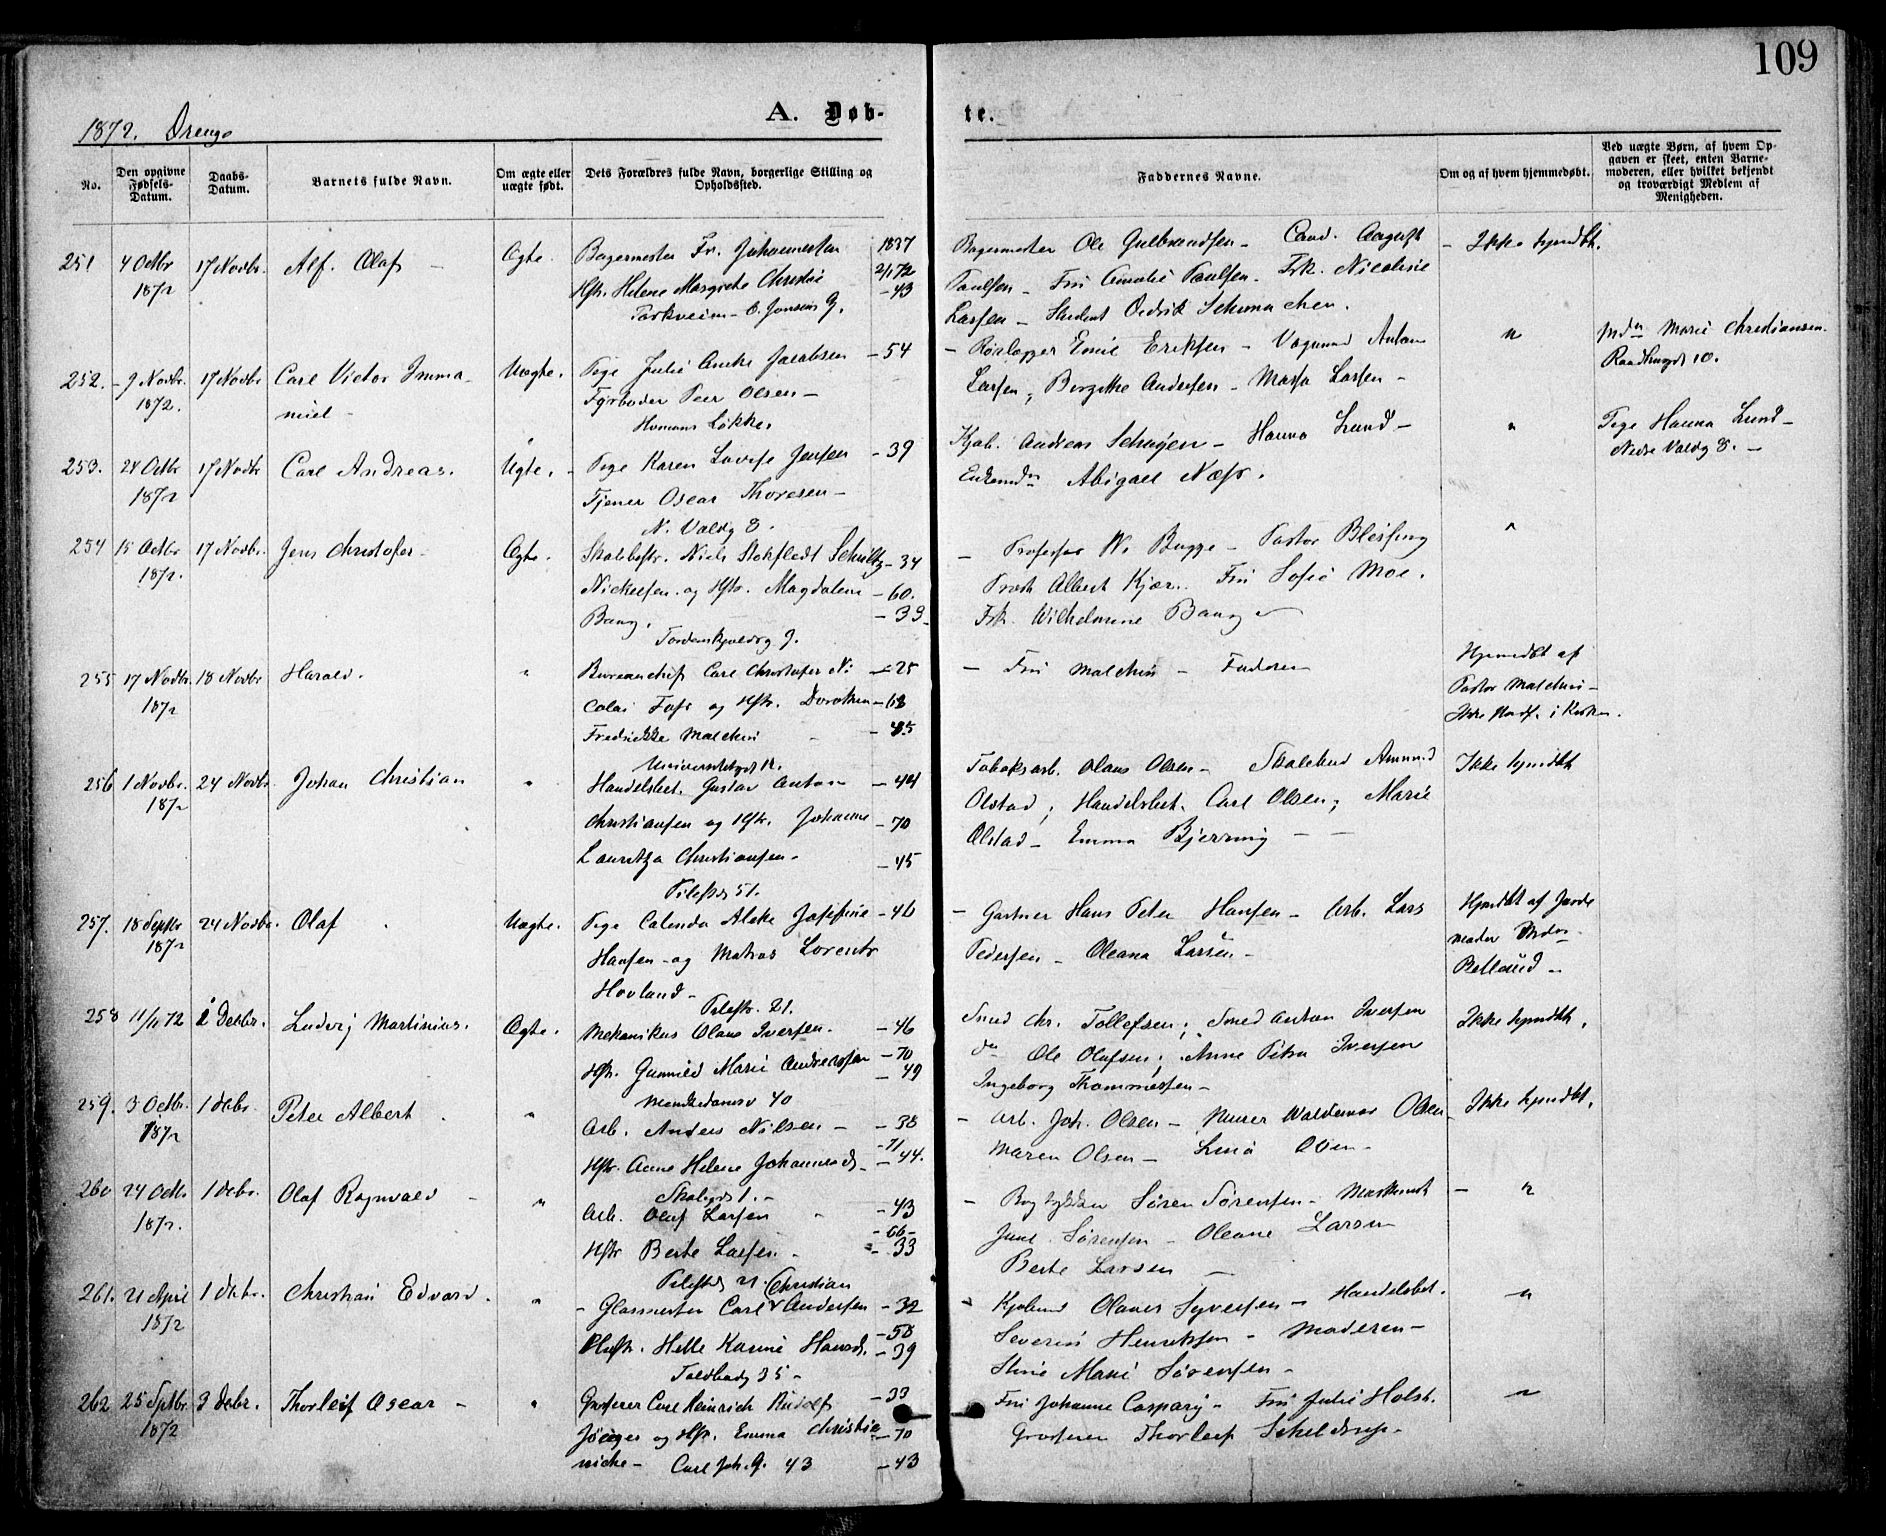 109
1872. Drenge
A. Døb-
te.
No.
Den opgivne Fødsels-Datum.
Daabs-Datum.
Barnets fulde Navn.
Om ægte eller uægte født.
Dets Forældres fulde Navn, borgerlige Stilling og Opholdssted.
Faddernes Navne.
Om og af hvem hjemmedøbt.
Ved uægte Børn, af hvem Opgaven er skeet, enten Barnemoderen, eller hvilket bekjendt og troværdigt Medlem af Menigheden.
251 4 Octbr 1872 17 Novbr. Alf. Olaf - Ægte.
Bagermester Fr. Johannesen 1837
2/1 72
Hstr. Helene Margrete Christie - 43
Parkveien - O. Jonsens G.
Bagermester Ole Gulbrandsen - Cand. August
Paulsen - Fru Amalie Paulsen - Frk. Nicoline
Larsen - Student Schumacher.
- Ikke hjmdbt.
252. - 9 Novbr. 1872. 17 Novbr Carl Victor Imma-
nuel -
Uægte.
Pige Julie Jacobsen - 54
Fyrbøder Peer Olsen -
Homans Løkke.
- Emil Eriksen - Vognmand Anton
Larsen, Andersen - Larsen -
"
Mdm Marie Christiansen.
Raadhusgd 10.
253. 24 Octbr 1872 17 Novbr Carl Andreas. Uægte. -
Pige Karen Lovise Jensen - 39
Tjener Oscar Thoresen -
N. Voldg 8.
Andreas - Hanna Lund -
Enkemdm Abigael Næss.
"
Pige Hanna Lund -
Nedre Voldg 8. -
254 15 Octbr 1872. 17 Novbr. Jens Christofer - Ægte.
Skolebestr. Niels Stokfledt Schultz - 34
Nickelsen. og Hstr. Magdalene - 60.
Bang. - 33
Tordenskjoldsg 9.
- Professor Bugge - Pastor Blessing
Præst Albert Kjær. Fru Sofie Moe.
Frk. Wilhelmine Bang -
"
255 17 Novbr. 1872 18 Novbr Harald. "
Bureauchef Carl Christofer Ni- - 25
colai Foss og Hstr. Dorothea - 63
Fredrikke Malthe - 45
Universitetsgd 12.
- Fru - Faderen
Hjemdbt af
Pastor
Ikke i Kirken.
256 1 Novbr. 1872 24 Novbr Johan Christian "
Handelsbet. Gustav Anton - 44
Christiansen og Hstr. Johanne - 70
Lauritza Christiansen - - 45
Pilestr 51.
Tobaksarb. Olaus Olsen - Amund
Olstad; Handelsbet. Carl Olsen; Marie
Olstad - Emma Bjerring - -
Ikke hjmdbt
257. 18 Septbr 1872 24 Novbr. Olaf Uægte.
Pige Josefine - 46
Hansen - og Matros Lorents
Hovland -
Pilestr. 21.
- Gartner Hans Peter Hansen - Arb. Lars
Pedersen - Oleana Larsen -
Hjmdbt af Jorde
moder Mdm
258 11/11 72 1 Decbr. Ludvig Martinius. Ægte.
Mekanikus Olaus Iversen. - 46
- 70
Hstr. Gunnild Marie Andersen - 49
Munkedamsv 40
Smed Chr. Tollefsen; Smed Anton Iversen
do Ole Olafsen; Anne Petra Iversen
Ingeborg Thommesen -
Ikke hjmdbt.
259. 3 Octbr. 1872 1 Decbr. Peter Albert "
Arb. Anders Nilsen - - 38
- 71
Hstr. Anne Helene Johannesd. - 44.
1. -
- Arb. Joh. Olsen - Murer Waldemar Olsen
Maren Olsen - Olsen -
- Ikke hjmdbt.
260 24 Octbr 1872. 1 Decbr. Olaf Ragnvald - "
Arb. Olaf Larsen - 43
- 66 -
Hstr Berte Larsen - - 33
Pilestr 21
- Søren Sørensen -
Sørensen - Oleane Larsen
Berte Larsen -
- "
261. 21 April 1872 1 Decbr. Christian Edvard. "
- Glasmester Carl (Christian Andersen - 32
- 58
Hustr. Helle Karine Hansd. - 39
Toldbodg 35 -
- Olaves Syversen - Handelsbet.
Severin Henriksen - Moderen -
Marie Sørensen -
"
262 25 Sptbr. 1872 3 Decbr. Thorleif Oscar - "
Grosserer Carl Heinrich Rudolf - 33
og Hstr. Emma Christia - 70
- Carl Joh. G. 43 - 43
Fru Johanne Caspary - Fru Julie Holst.
Grosserer Thorleif Schelderup -
"